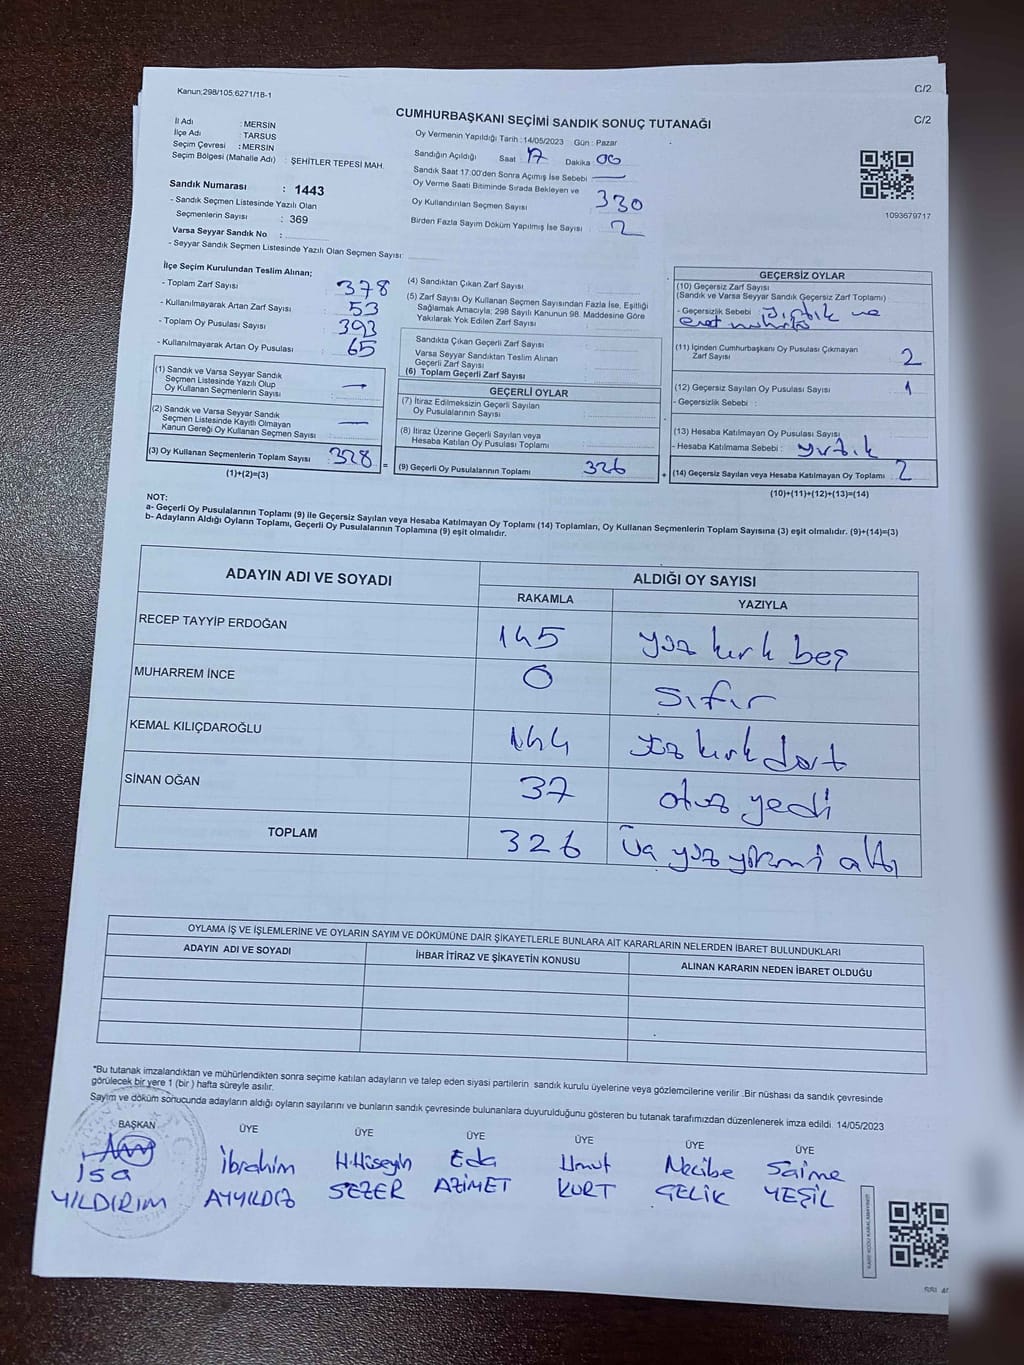 Kanun;298/105,6271/1B-1
C/2
C/2
CUMHURBAŞKANI SEÇİMİ SANDIK SONUÇ TUTANAĞI
İl Adı : MERSİN
İlçe Adı : TARSUS
Seçim Çevresi : MERSİN
Seçim Bölgesi (Mahalle Adı) : ŞEHİTLER TEPESİ MAH.
Sandık Numarası : 1443
- Sandık Seçmen Listesinde Yazılı Olan
Seçmenlerin Sayısı : 369
Varsa Seyyar Sandık No :
- Seyyar Sandık Seçmen Listesinde Yazılı Olan Seçmen Sayısı:
Oy Vermenin Yapıldığı Tarih : 14/05/2023 Gün : Pazar
Sandığın Açıldığı Saat 17 Dakika 00
Sandık Saat 17:00'den Sonra Açımış İse Sebebi —
Oy Verme Saati Bitiminde Sırada Bekleyen ve
Oy Kullandırılan Seçmen Sayısı 330
Birden Fazla Sayım Döküm Yapılmış İse Sayısı : 2
1093679717
İlçe Seçim Kurulundan Teslim Alınan;
- Toplam Zarf Sayısı : 378
- Kullanılmayarak Artan Zarf Sayısı : 53
- Toplam Oy Pusulası Sayısı : 393
- Kullanılmayarak Artan Oy Pusulası : 65
(1) Sandık ve Varsa Seyyar Sandık
Seçmen Listesinde Yazılı Olup
Oy Kullanan Seçmenlerin Sayısı : —
(2) Sandık ve Varsa Seyyar Sandık
Seçmen Listesinde Kayıtlı Olmayan
Kanun Gereği Oy Kullanan Seçmen Sayısı : —
(3) Oy Kullanan Seçmenlerin Toplam Sayısı : 328 =
(1)+(2)=(3)
(4) Sandıktan Çıkan Zarf Sayısı :
(5) Zarf Sayısı Oy Kullanan Seçmen Sayısından Fazla İse, Eşitliği
Sağlamak Amacıyla; 298 Sayılı Kanunun 98. Maddesine Göre
Yakılarak Yok Edilen Zarf Sayısı :
Sandıkta Çıkan Geçerli Zarf Sayısı :
Varsa Seyyar Sandıktan Teslim Alınan
Geçerli Zarf Sayısı :
(6) Toplam Geçerli Zarf Sayısı :
GEÇERLİ OYLAR
(7) İtiraz Edilmeksizin Geçerli Sayılan
Oy Pusulalarının Sayısı :
(8) İtiraz Üzerine Geçerli Sayılan veya
Hesaba Katılan Oy Pusulası Toplamı :
(9) Geçerli Oy Pusulalarının Toplamı : 326 +
GEÇERSİZ OYLAR
(10) Geçersiz Zarf Sayısı
(Sandık ve Varsa Seyyar Sandık Geçersiz Zarf Toplamı)
- Geçersizlik Sebebi : ve
(11) İçinden Cumhurbaşkanı Oy Pusulası Çıkmayan
Zarf Sayısı 2
(12) Geçersiz Sayılan Oy Pusulası Sayısı : 1
- Geçersizlik Sebebi :
(13) Hesaba Katılmayan Oy Pusulası Sayısı :
- Hesaba Katılmama Sebebi : yırtık
(14) Geçersiz Sayılan veya Hesaba Katılmayan Oy Toplamı : 2
(10)+(11)+(12)+(13)=(14)
NOT:
a- Geçerli Oy Pusulalarının Toplamı (9) ile Geçersiz Sayılan veya Hesaba Katılmayan Oy Toplamı (14) Toplamları, Oy Kullanan Seçmenlerin Toplam Sayısına (3) eşit olmalıdır. (9)+(14)=(3)
b- Adayların Aldığı Oyların Toplamı, Geçerli Oy Pusulalarının Toplamına (9) eşit olmalıdır.
ADAYIN ADI VE SOYADI ALDIĞI OY SAYISI
RAKAMLA YAZIYLA
RECEP TAYYİP ERDOĞAN 145 yüz kırk beş
MUHARREM İNCE 0 sıfır
KEMAL KILIÇDAROĞLU 144 yüz kırk dört
SİNAN OĞAN 37 otuz yedi
TOPLAM 326 üç yüz yirmi altı
OYLAMA İŞ VE İŞLEMLERİNE VE OYLARIN SAYIM VE DÖKÜMÜNE DAİR ŞİKAYETLERLE BUNLARA AİT KARARLARIN NELERDEN İBARET BULUNDUKLARI
ADAYIN ADI VE SOYADI İHBAR İTİRAZ VE ŞİKAYETİN KONUSU ALINAN KARARIN NEDEN İBARET OLDUĞU
"Bu tutanak imzalandıktan ve mühürlendikten sonra seçime katılan adayların ve talep eden siyasi partilerin sandık kurulu üyelerine veya gözlemcilerine verilir .Bir nüshası da sandık çevresinde
görülecek bir yere 1 (bir ) hafta süreyle asılır.
Sayım ve döküm sonucunda adayların aldığı oyların sayılarını ve bunların sandık çevresinde bulunanlara duyurulduğunu gösteren bu tutanak tarafımızdan düzenlenerek imza edildi. 14/05/2023
BAŞKAN ÜYE ÜYE ÜYE ÜYE ÜYE ÜYE
isa İbrahim H.Hüseyin Eda Umut Necibe Saime
YILDIRIM AYYILDIZ SEZER AZİMET KURT ÇELİK YEŞİL